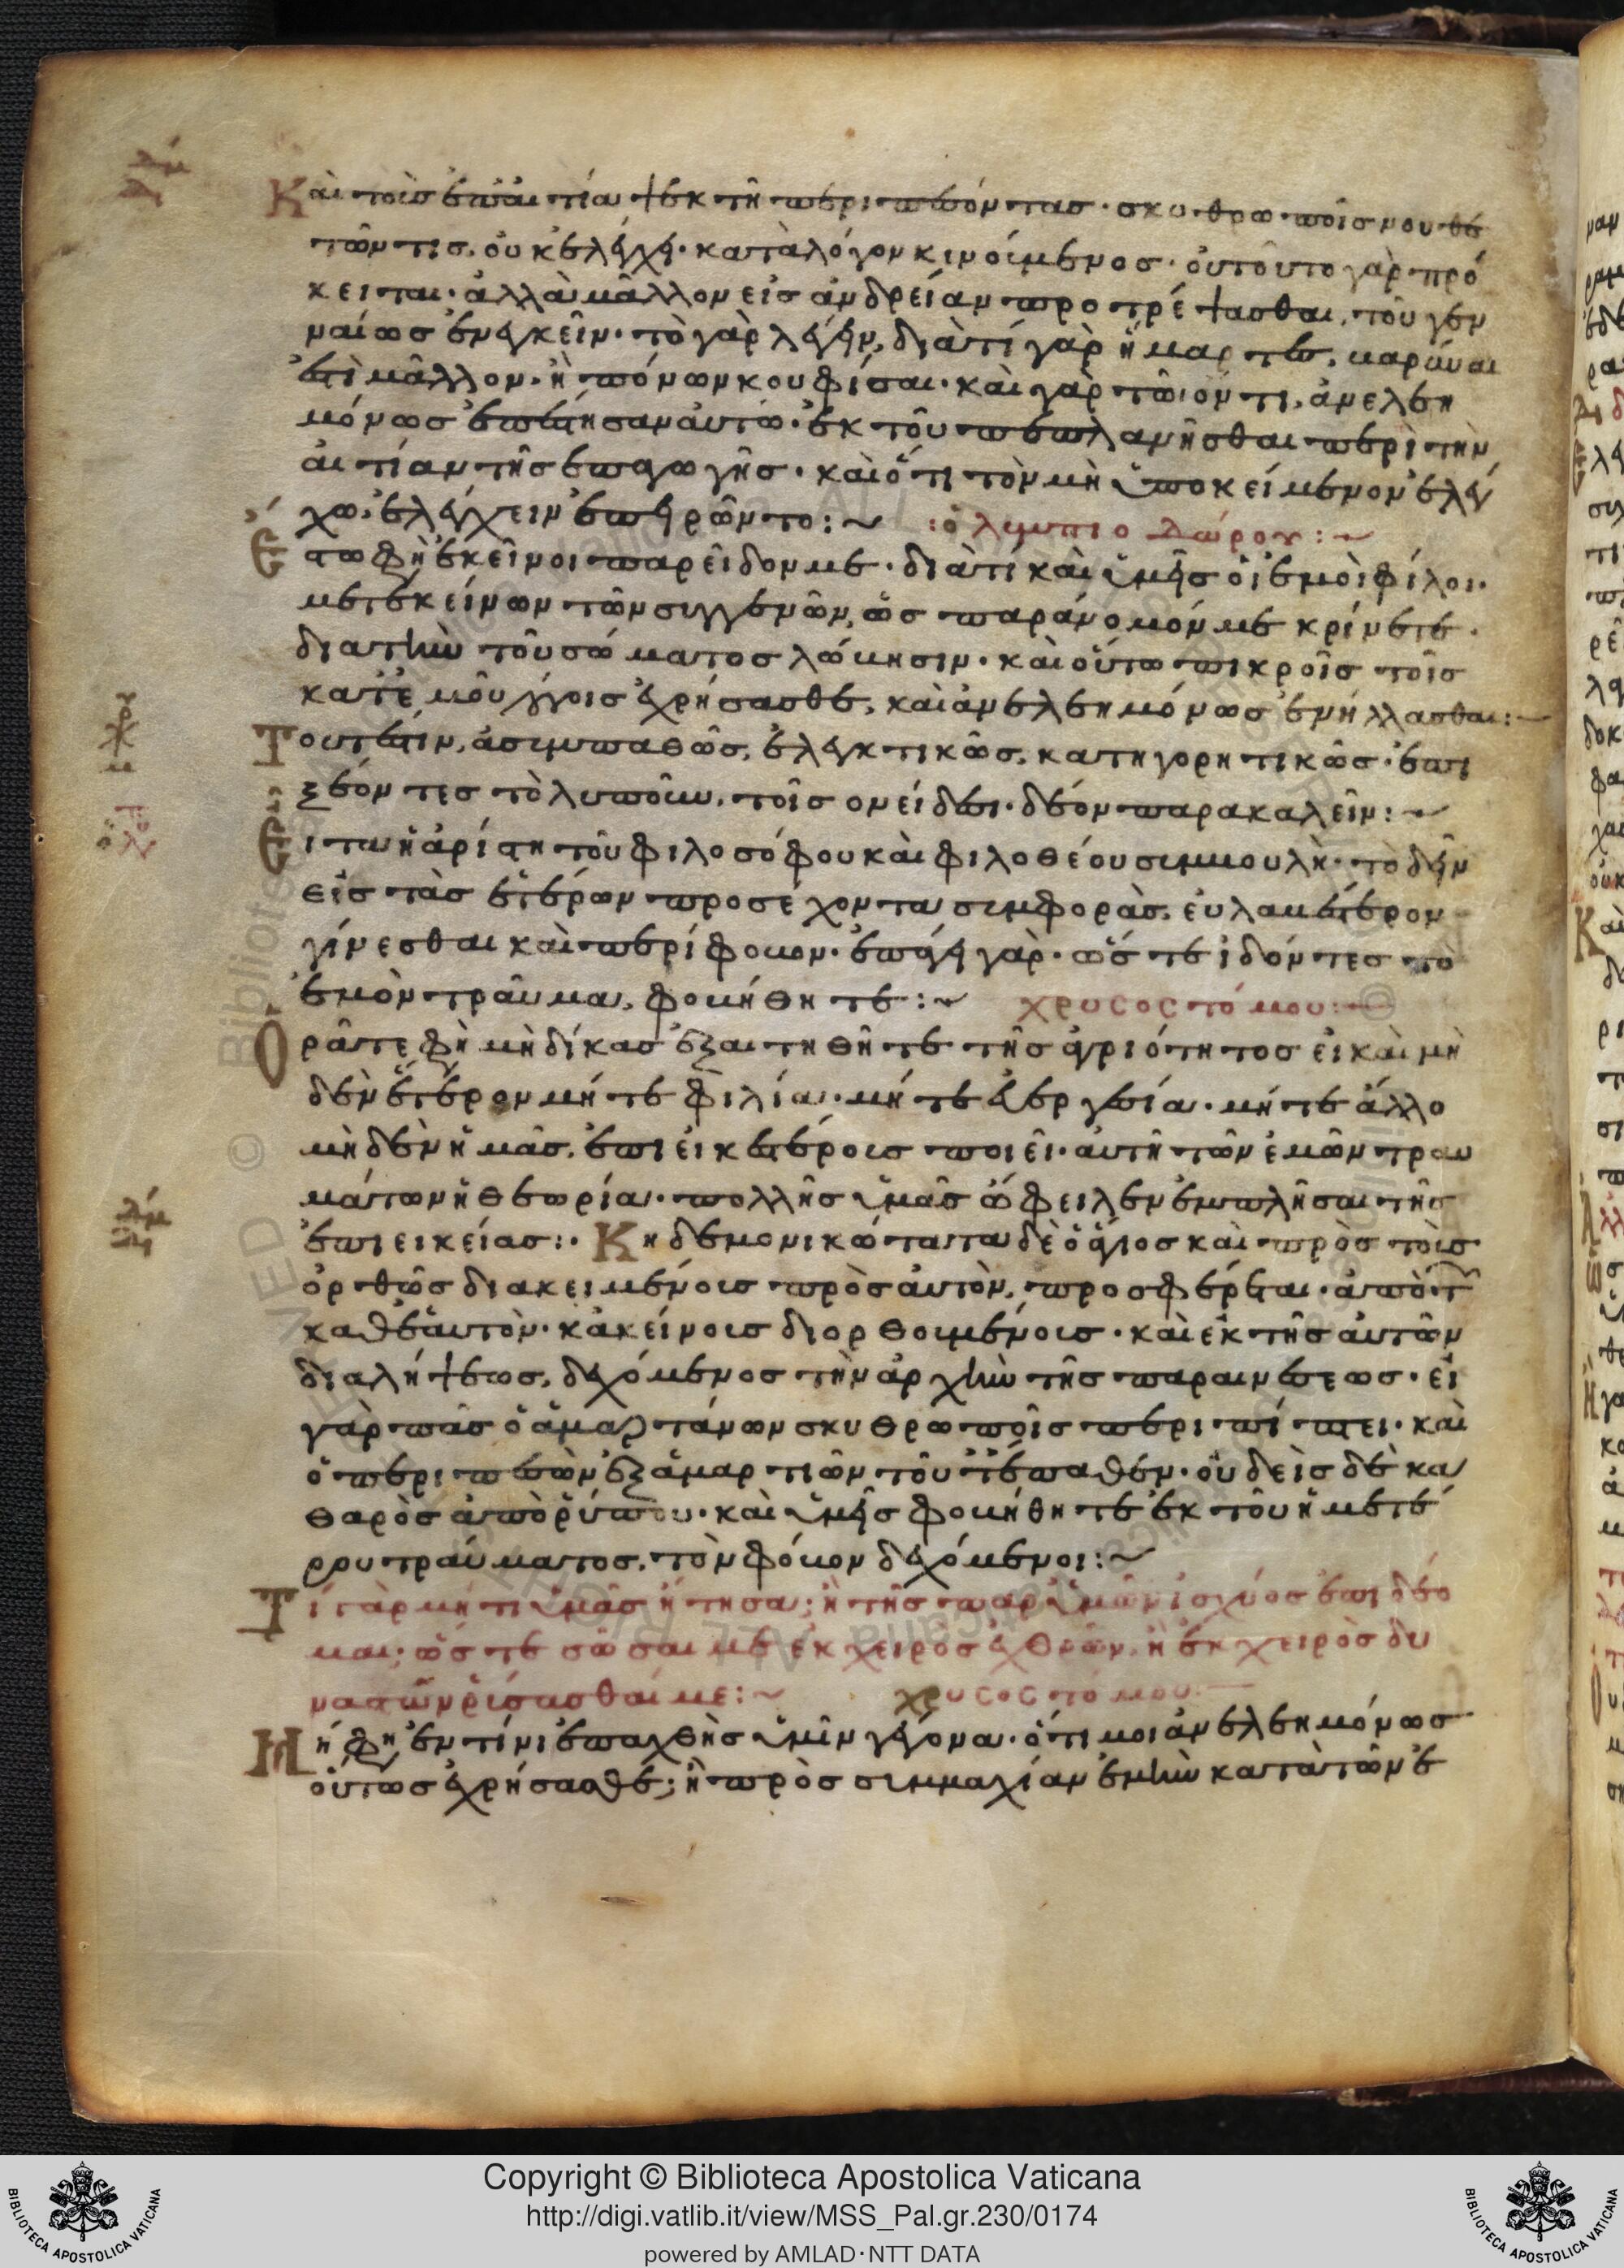 Καὶ τοῖς ἐπταικόσι τῇ περιπτώσει σκυθρωποῖς νουθε
τῶν τις, οὐκ ἐλέγχει κατὰ λόγον κινούμενος· οὐ τοῦτο γὰρ πρό
κειται· ἀλλὰ μᾶλλον εἰς ἀνδρείαν προτρέψασθαι, τοῦ γεν
ναίως ἐνεγκεῖν· τὸ γὰρ λέγειν, διὰ τί γὰρ ἥμαρτες, βαρῦναι
ἐστὶ μᾶλλον, ἢ πόνων κουφίσαι· καὶ γὰρ τῷ ὄντι, ἀνελεη
μόνως ἐπέστησαν αὐτῷ· ἐκ τοῦ πεπλανῆσθαι περὶ τὴν
αἰτίαν τῆς ἐπαγωγῆς· καὶ ὅτι τὸν μὴ ὑποκείμενον ἐλέγ
χῳ· ἐλέγχειν ἐπειρῶντο:~ :ὀλυμπιοδώρου:~
Ἔστω φη ἐκεῖνοι παρεῖδον με· διὰ τί καὶ ὑμεῖς οἱ ἐμοὶ φίλοι·
μετ ἐκείνων τῶν συγγενῶν, ὡς παράνομόν με κρίνετε·
δια τὴν τοῦ σώματος λώβησιν· καὶ οὕτω πικροῖς τοῖς
κατ ἐμοῦ λόγοις ἐχρήσασθε, καὶ ἀνελεημόνως ἐνήλλασθαι:~
Τουτέστιν, ἀσυμπαθῶς, ἐλεγκτικῶς, κατηγορητικῶς· ἐπι
ξεόντες τὸ λυποῦν, τοῖς ὀνείδεσι· δέον παρακαλεῖν:~
Εἶτα ἡ ἀρίστη τοῦ φιλοσόφου καὶ φιλοθέου συμβουλὴ· τὸ δεῖν
εἰς τὰς ἑτέρων προσέχοντα συμφορὰς, εὐλαβέστερον
γίνεσθαι καὶ περίφοβον· ἐπάγει γάρ· ὥστε ἰδόντες τὸ
ἐμὸν τραῦμα, φοβήθητε:~ χρυσοστόμου:~
Ὁρᾶτε φη μὴ δίκας ἐξαιτηθῆτε τῆς ἀγριότητος εἰ καὶ μη
δὲν ἕτερον μήτε φιλία· μήτε εὐεργεσία· μήτε ἄλλο
μηδὲν ἡμᾶς, ἐπιεικεστέροις ποιεῖ· αὐτὴ τῶν ἐμῶν τραυ
μάτων ἡ θεωρία· πολλῆς ὑμᾶς ὤφειλεν ἐμπλῆσαι τῆς
ἐπιεικείας:· Κηδεμονικώτατα δὲ ὁ ἅγιος καὶ πρὸς τοῖς
ὀρθῶς διακειμένοις πρὸς αὐτὸν, προσφέρεται· ἀπὸ τ
καθ ἑαυτὸν· κἀκείνοις διορθουμένοις· καὶ ἐκ τῆς αὐτῶν
διαλήψεως, δεχόμενος τὴν ἀρχὴν τῆς παραινέσεως· εἰ
γὰρ πᾶς ὁ ἁμαρτάνων σκυθρωποῖς περιπίπτει· καὶ
ὁ περιπεσὼν ἐξ ἁμαρτιῶν τοῦτ ἔπαθεν· οὐδεὶς δὲ κα
θαρὸς ἀπὸ ῥύπου· καὶ ὑμεῖς φοβήθητε ἐκ τοῦ ἡμετέ
ρου τραύματος, τὸν φόβον δεχόμενοι:~
Τί γὰρ μή τι ὑμᾶς ἤτησα; ἢ τῆς παρ ὑμῶν ἰσχύος ἐπιδέο
μαι; ὥστε σῶσαι με ἐκ χειρὸς ἐχθρῶν, ἢ ἐκ χειρὸς δυ
ναστῶν ῥύσασθαί με:~ χρυσοστόμου:~
Μή φη ἔν τινι ἐπαχθὴς ὑμῖν γέγονα· ὅτι μοι ἀνελεημόνως
οὕτως ἐχρήσασθε; ἢ πρὸς συμμαχίαν ἐμὴν κατὰ τῶν ἐ
Copyright © Biblioteca Apostolica Vaticana
http://digi.vatlib.it/view/MSS_Pal.gr.230/0174
powered by AMLAD·NTT DATA